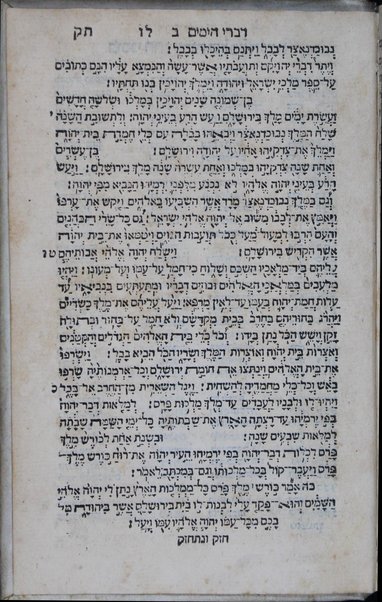 דברי הימים ב לו תק
נבוכדנאצר לבבל ויתנם בהיכלו בבבל׃
ויתר דברי יהויקים ותועבתיו אשר עשה והנמצא עליו הנם כתובים
על ספר מלכי ישראל ויהודה וימלך יהויכין בנו תחתיו׃
בן שמונה שנים יהויכין במלכו ושלשה חדשים
ועשרת ימים מלך בירושלם ויעש הרע בעיני יהוה׃ ולתשובת השנה
שלח המלך נבוכדנאצר ויבאהו בבלה עם כלי חמדת בית יהוה
וימלך את צדקיהו אחיו על יהודה וירושלם׃ בן עשרים
ואחת שנה צדקיהו במלכו ואחת עשרה שנה מלך בירושלם׃ ויעש
הרע בעיני יהוה אלהיו לא נכנע מלפני ירמיהו הנביא מפי יהוה׃
וגם במלך נבוכדנאצר מרד אשר השביעו באלהים ויקש את ערפו
ויאמץ את לבבו משוב אל יהוה אלהי ישראל׃ גם כל שרי הכהנים
והעם הרבו למעול מעל ככל תועבות הגוים ויטמאו את בית יהוה
אשר הקדיש בירושלם׃ וישלח יהוה אלהי אבותיהם טו
עליהם ביד מלאכיו השכם ושלוח כי חמל על עמו ועל מעונו׃ ויהיו
מלעבים במלאכי האלהים ובוזים דבריו ומתעתעים בנביאיו עד
עלות חמת יהוה בעמו עד לאין מרפא׃ ויעל עליהם את מלך כשדיים
ויהרג בחוריהם בחרב בבית מקדשם ולא חמל על בחור ובתולה
זקן וישש הכל נתן בידו׃ וכל כלי בית האלהים הגדולים והקטנים
ואצרות בית יהוה ואוצרות המלך ושריו הכל הביא בבל׃ וישרפו
את בית האלהים וינתצו את חומת ירושלם וכל ארמנותיה שרפו
באש וכל כלי מחמדיה להשחית׃ ויגל השארית מן החרב אל בבל כ
ויהיו לו ולבניו לעבדים עד מלך מלכות פרס׃ למלאות דבר יהוה
בפי ירמיהו עד רצתה הארץ את שבתותיה כל ימי השמה שבתה
למלאות שבעים שנה׃ ובשנת אחת לכורש מלך
פרס לכלות דבר יהוה בפי ירמיהו העיר יהוה את רוח כורש מלך
פרס ויעבר קול בכל מלכותו וגם במכתב לאמר׃
כה אמר כורש מלך פרס כל ממלכות הארץ נתן לי יהוה אלהי
השמים והוא פקד עלי לבנות לו בית בירושלם אשר ביהודה מי
בכם מכל עמו יהוה אלהיו עמו ויעל׃
חזק ונתחזק